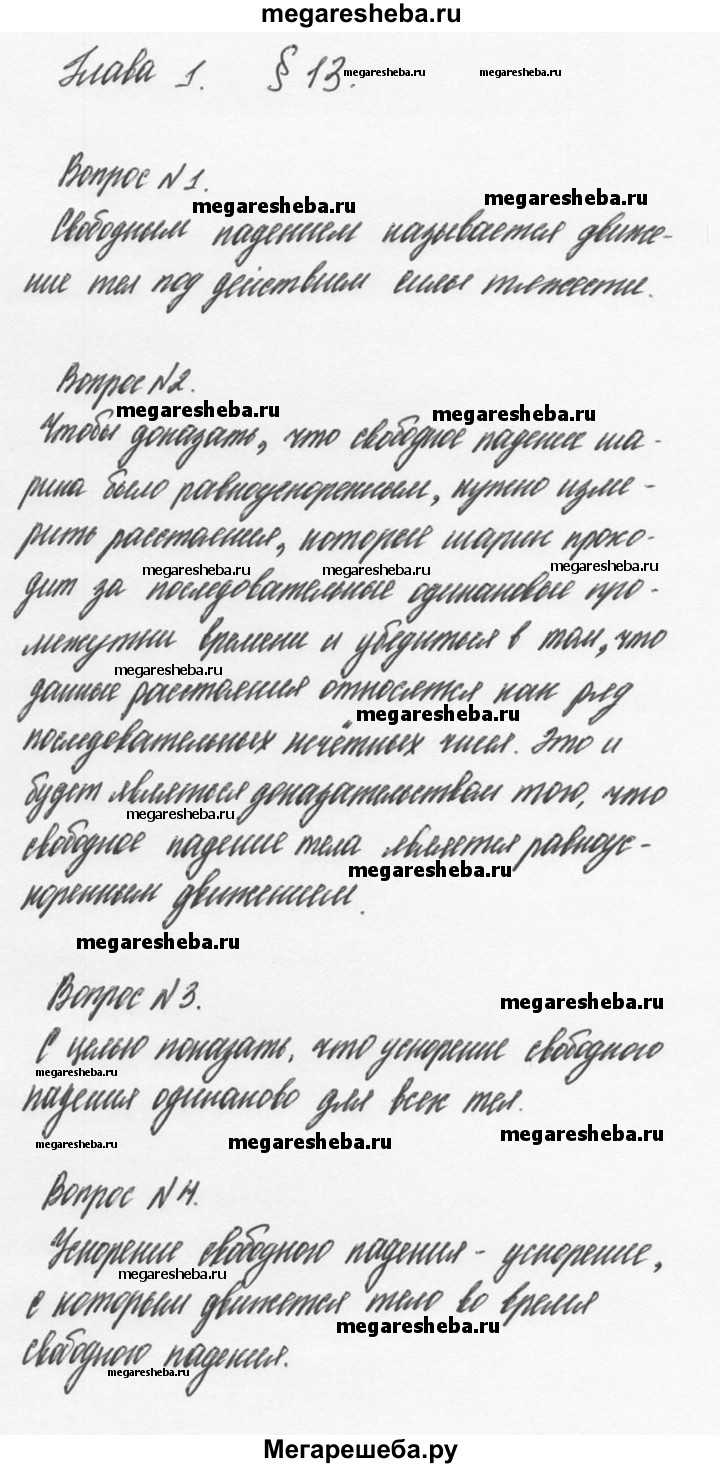 megaresheba.ru
Глава 1. § 13.
megaresheba.ru megaresheba.ru
Вопрос №1.
megaresheba.ru megaresheba.ru
Свободным падением называется движе-
ние тел под действием силы тяжести.
Вопрос №2.
megaresheba.ru megaresheba.ru
Чтобы доказать, что свободное падение ша-
рика было равноускоренным, нужно изме-
рить расстояния, которые шарик прохо-
megaresheba.ru megaresheba.ru megaresheba.ru
дит за последовательные одинаковые про-
межутки времени и убедиться в том, что
megaresheba.ru
данные расстояния относятся как ряд
megaresheba.ru
последовательных нечётных чисел. Это и
будет являться доказательством того, что
megaresheba.ru
свободное падение тела является равноус-
megaresheba.ru
коренным движением.
megaresheba.ru
Вопрос №3.
megaresheba.ru
С целью показать, что ускорение свободного
megaresheba.ru
падения одинаково для всех тел.
megaresheba.ru megaresheba.ru megaresheba.ru
Вопрос №4.
Ускорение свободного падения - ускорение,
megaresheba.ru
с которым движется тело во время
megaresheba.ru
свободного падения.
megaresheba.ru
Мегарешеба.ру